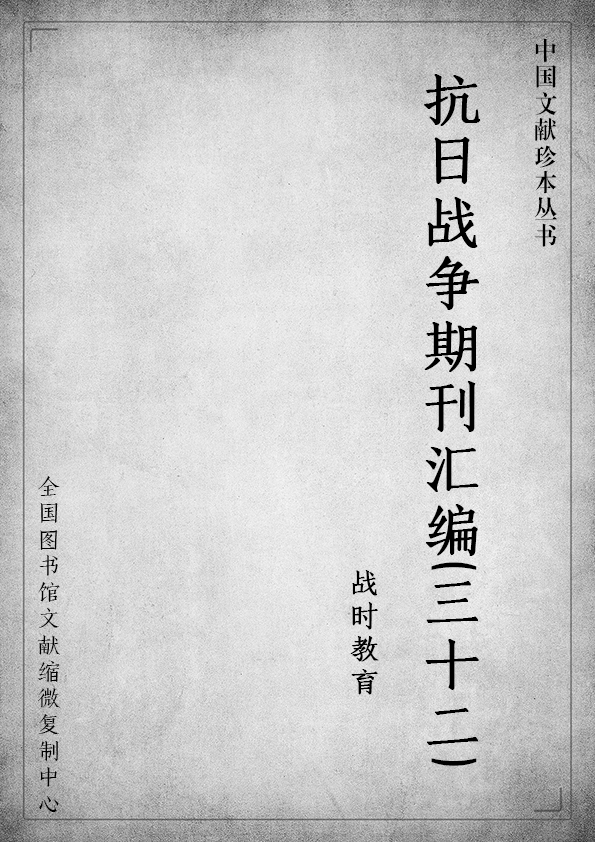 中国文献珍本丛书
抗日战争期刊汇编(三十二)
战时教育
全国图书馆文献缩微复制中心